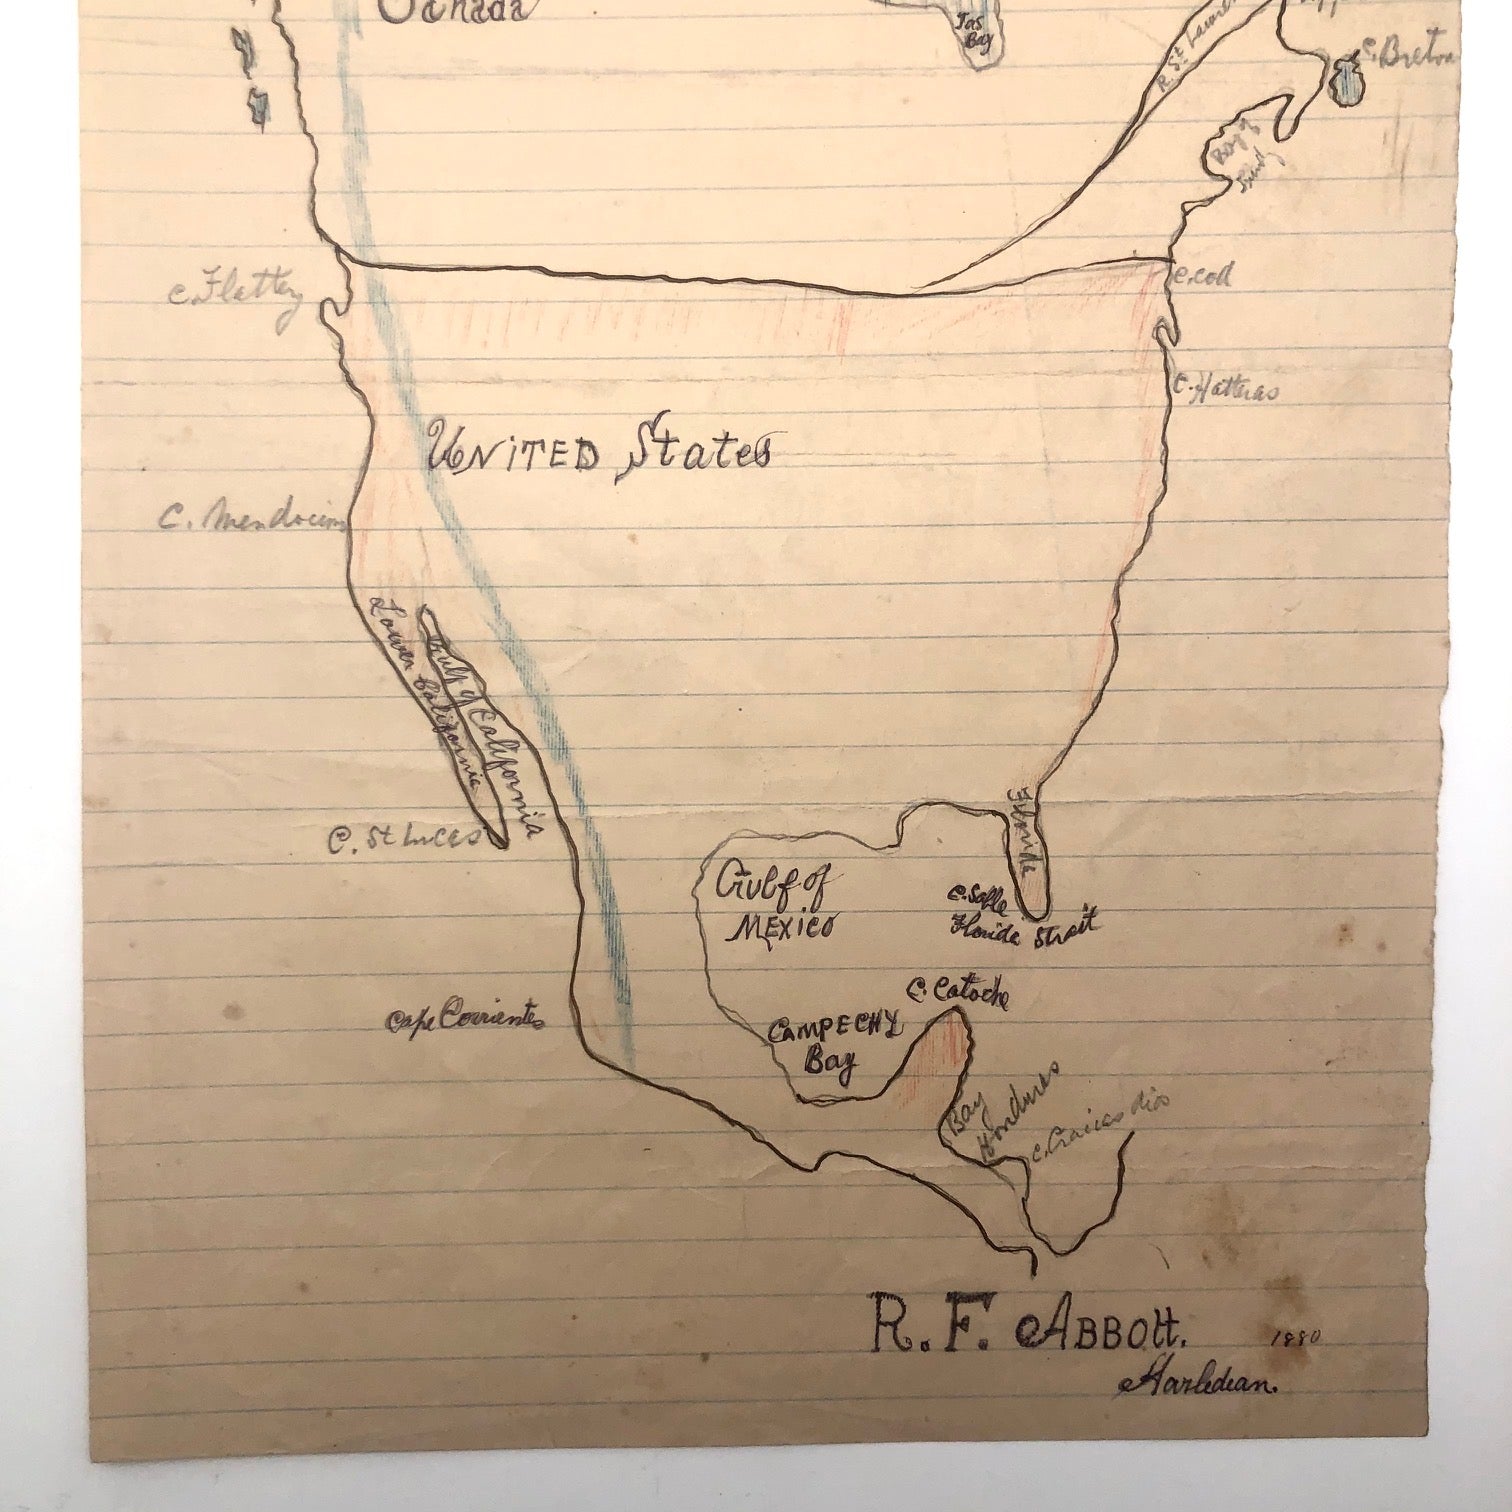 Canada
Jas
Bay
R. St. Lawren
C. Breton
Bay of
C. Flattery
C. cod
C. Hatteras
UNITED States
C. Mendocino
Lower California
Gulf of California
C. St Lucas
Florida
Gulf of
MEXICO
C. Sable
Florida Strait
C. Catoche
Cape Corrientes
CAMPECHY
Bay
Bay
Honduras
C. Gracias dios
R. F. ABBOtt.
1880